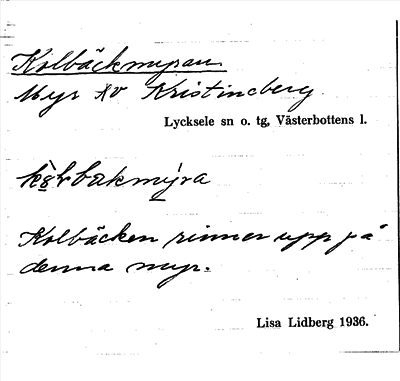 Kolbäckmyran
Myr NV Kristineberg
Lycksele sn o. tg, Västerbottens l.
Kolbäcken rinner upp på
denna myr.
Lisa Lidberg 1936.